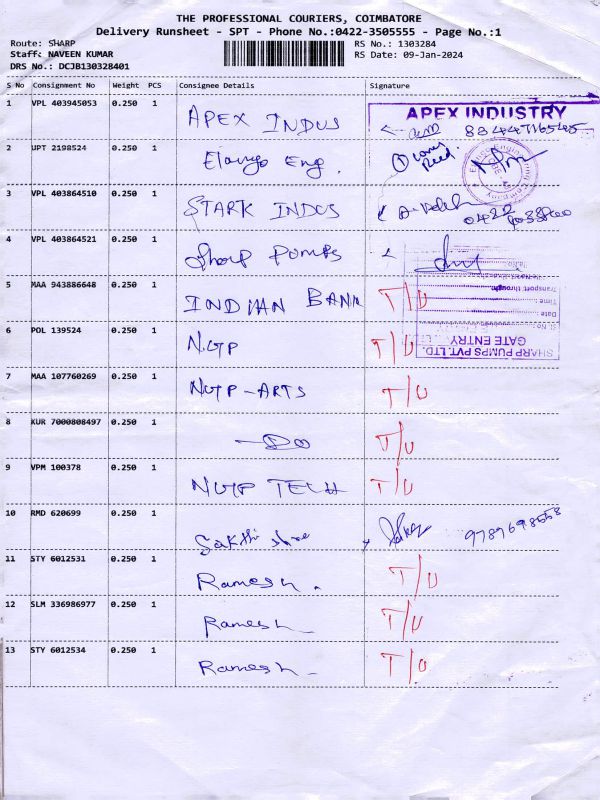 THE PROFESSIONAL COURIERS, COIMBATORE
Delivery Runsheet - SPT - Phone No.:0422-3505555 - Page No.:1
Route: SHARP RS No.: 1303284
Staff: NAVEEN KUMAR RS Date: 09-Jan-2024
DRS No.: DCJB130328401
S No Consignment No Weight PCS Consignee Details Signature
1 VPL 403945053 0.250 1 APEX INDUS APEX INDUSTRY
2 UPT 2198524 0.250 1 Elango Eng.
3 VPL 403864510 0.250 1 STARK INDUS
4 VPL 403864521 0.250 1 Sharp Pumps
5 MAA 943886648 0.250 1 INDIAN BANK T/U
6 POL 139524 0.250 1 N.GP T/U
7 MAA 107760269 0.250 1 NGP-ARTS T/U
8 KUR 7000808497 0.250 1 -Do T/U
9 VPM 100378 0.250 1 NGP TECH T/U
10 RMD 620699 0.250 1 Sakthi 9789698558
11 STY 6012531 0.250 1 Ramesh. T/U
12 SLM 336986977 0.250 1 Ramesh T/U
13 STY 6012534 0.250 1 Ramesh T/U
SHARP PUMPS PVT. LTD.
GATE ENTRY
Sl. No.:
Date
Time
Transport through: